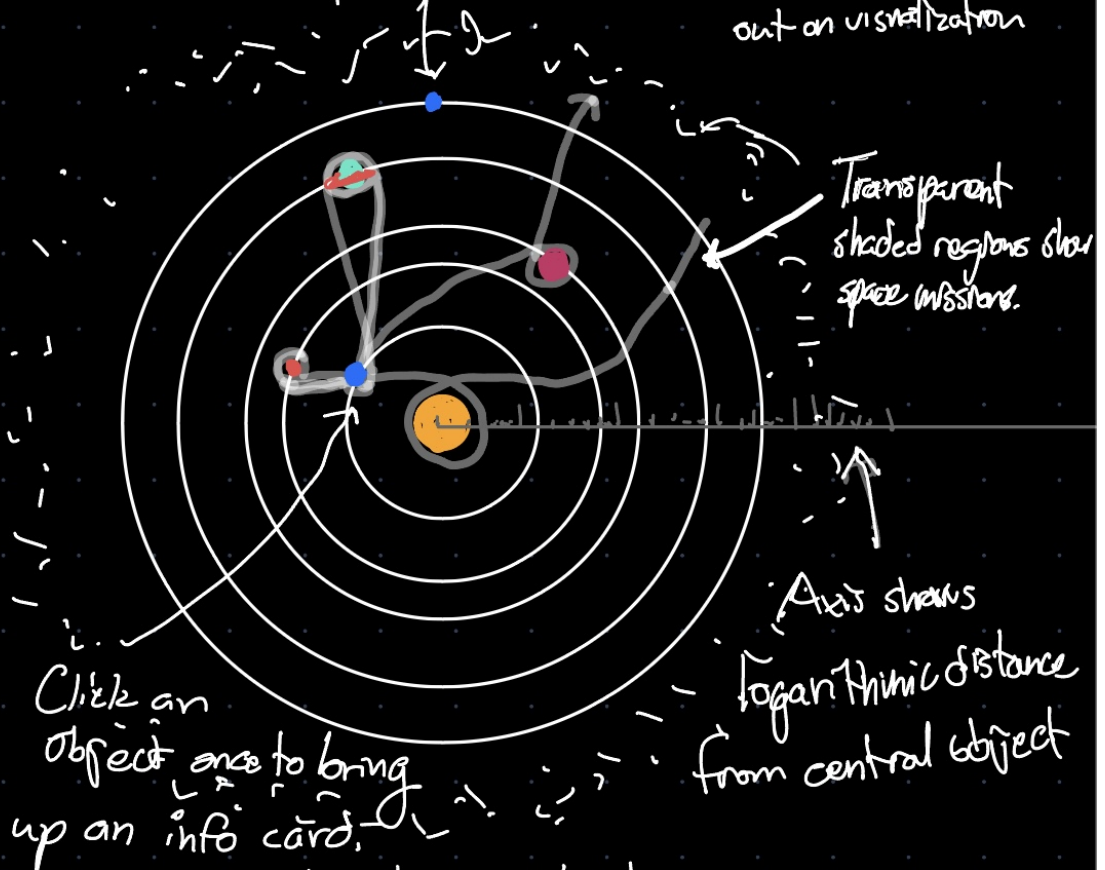 out on visualization
Transparent
shaded regions show
space missions.
Axis shows
logarithmic distance
from central object
Click an
object once to bring
up an info card.